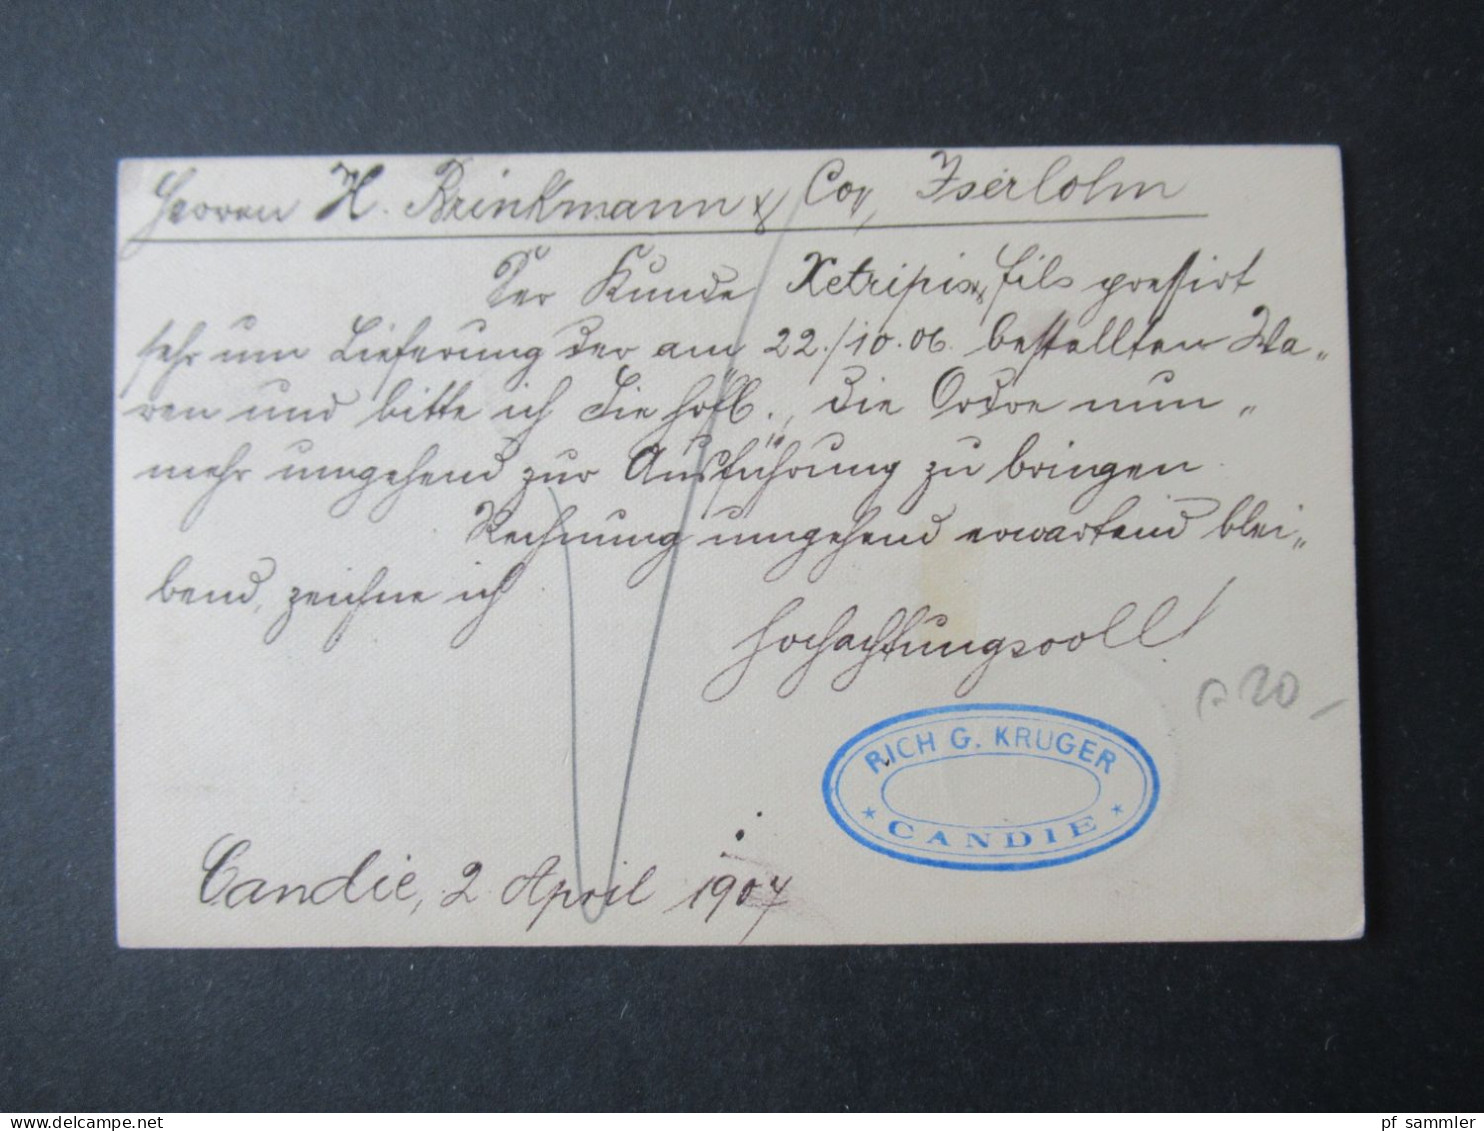 Herren H. Brinkmann & Co, Iserlohn
Der Kunde Xetripis & fils pressirt
sehr um Lieferung der am 22./10.06. bestellten Wa„
ren und bitte ich Sie höfl., die Ordre nun„
mehr umgehend zur Ausführung zu bringen.
Rechnung umgehend erwartend blei„
bend, zeichne ich
Hochachtungsvoll!
20-
RICH G. KRUGER
* CANDIE *
Candie, 2 April 1907
www.delcampe.net
pf_sammler